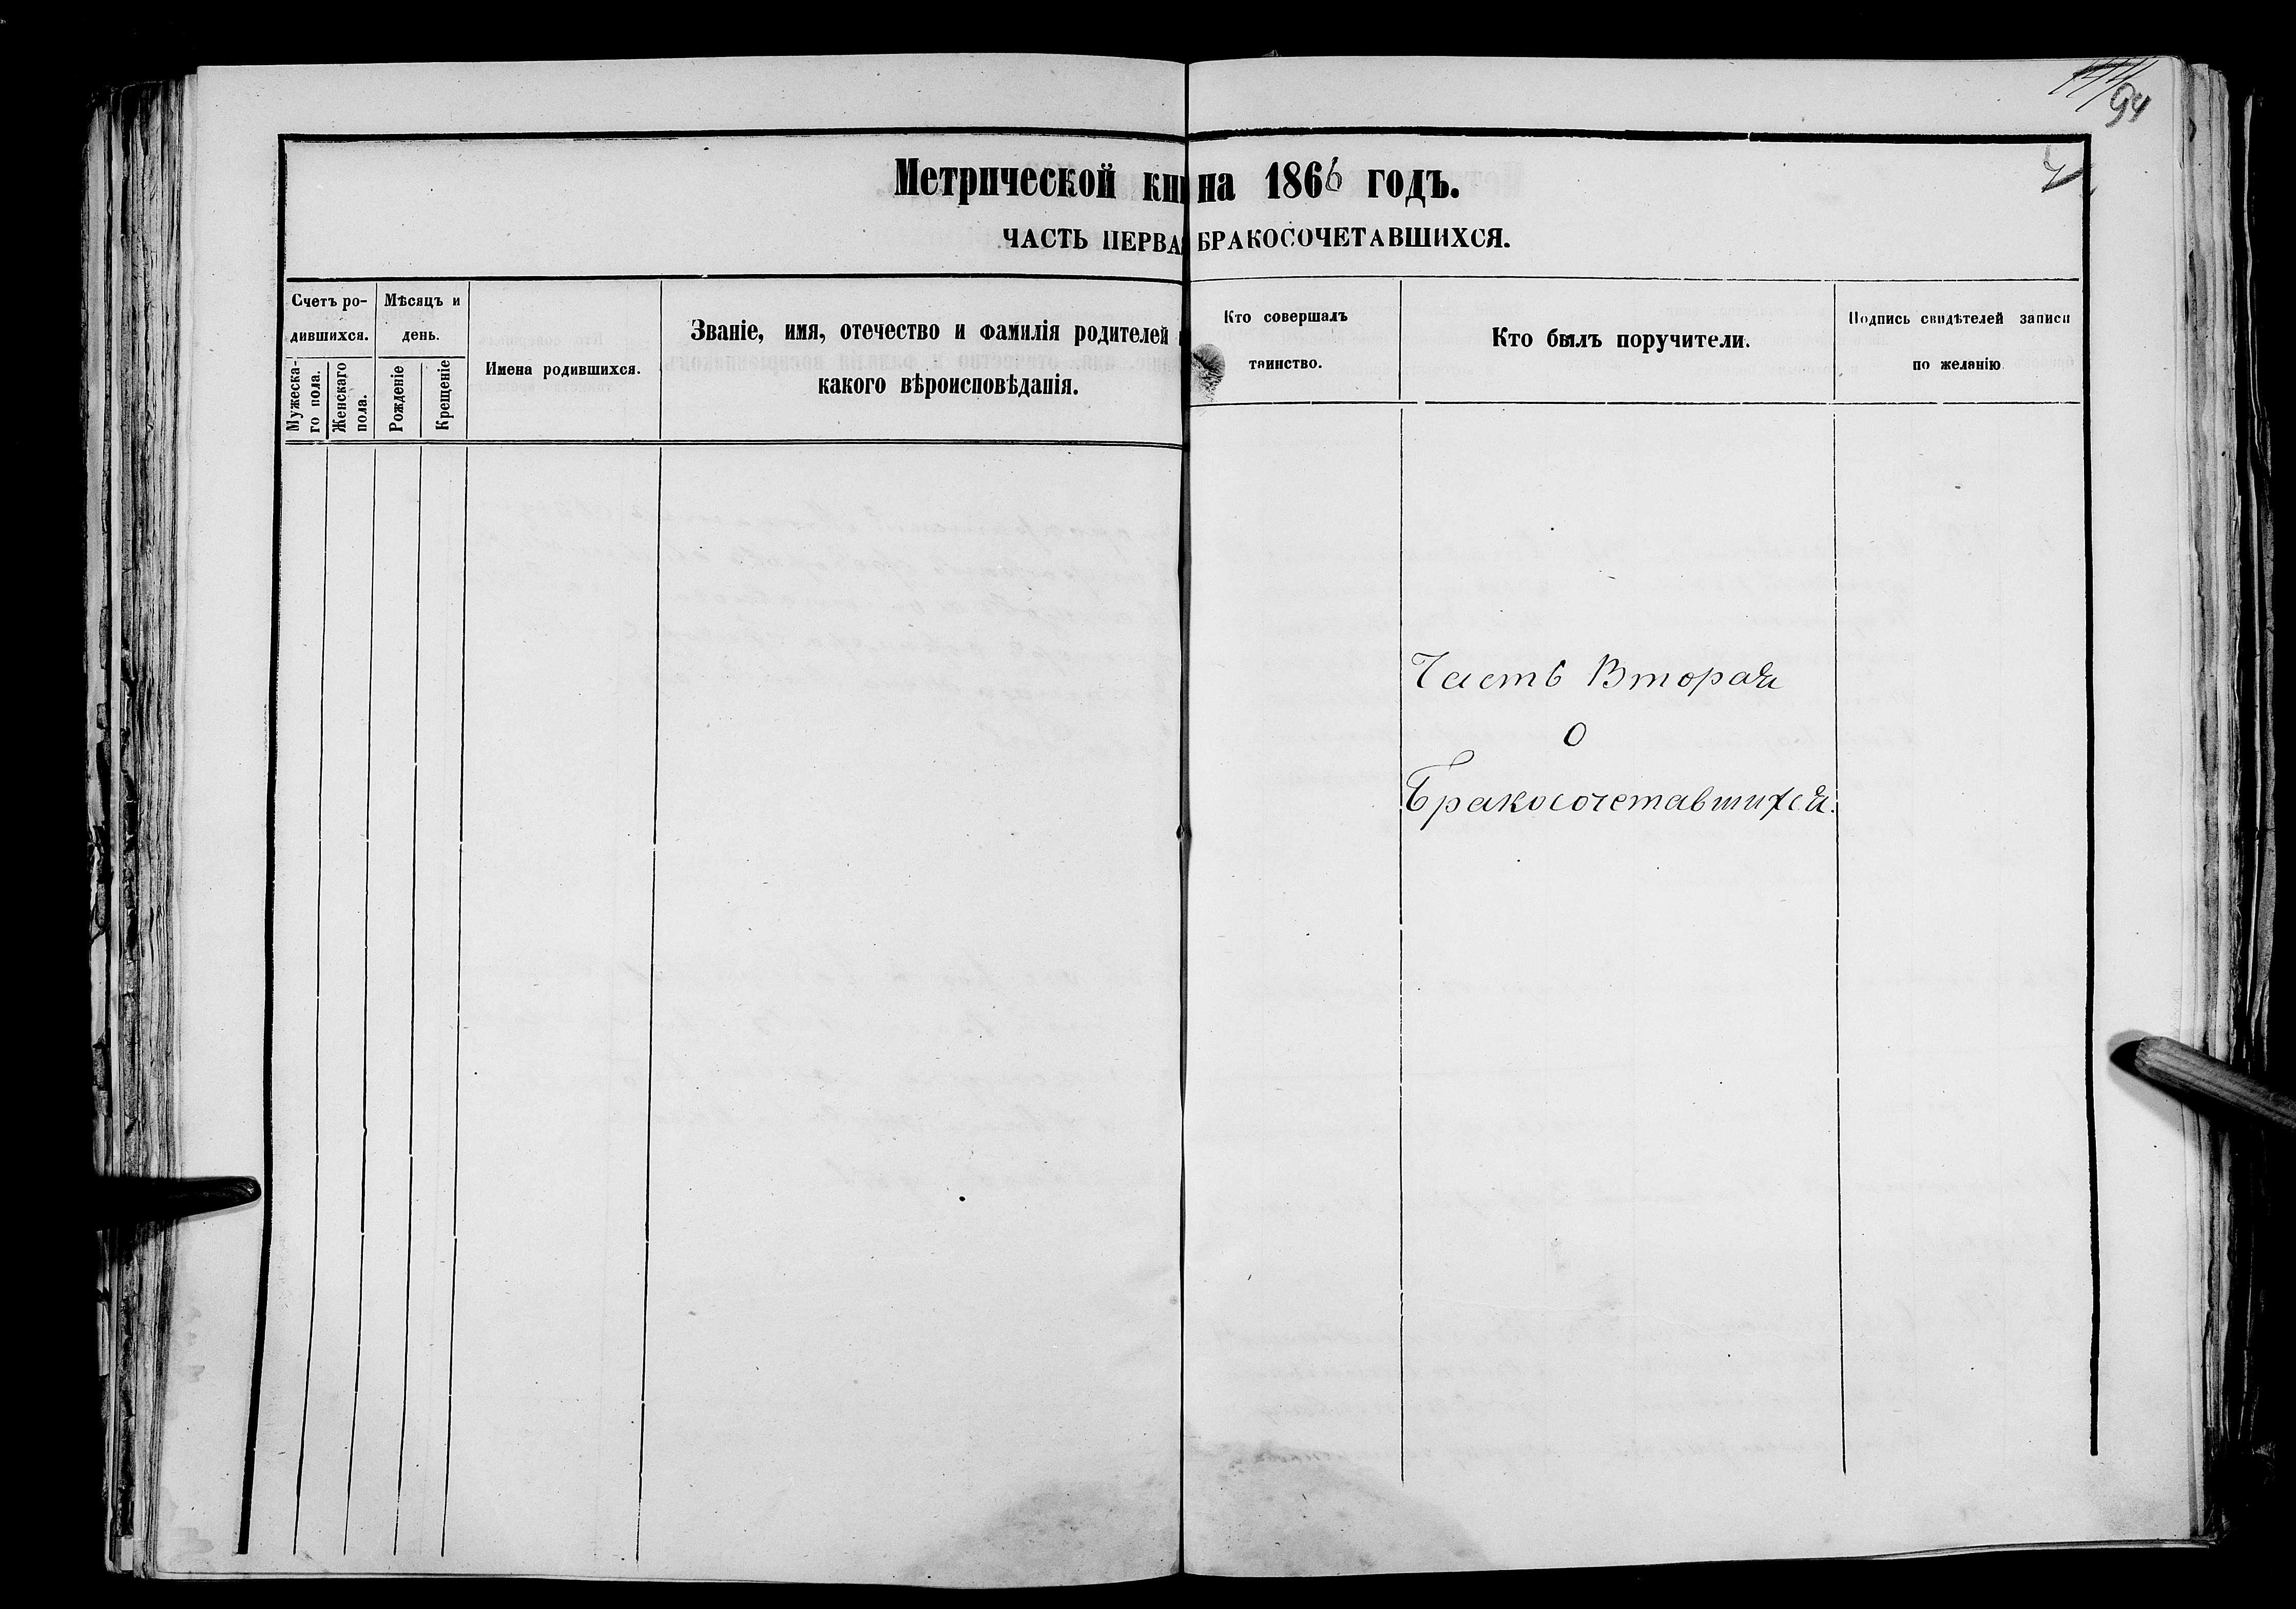 94
Метрической кни
ЧАСТЬ ПЕРВАЯ
Счетъ ро-
дившихся.
Мѣсяцъ и
день.
Мужеска-
го пола.
Женскаго
пола.
Рожденіе
Крещеніе
Имена родившихся.
Званіе, имя, отечество и фамилія родителей
какого вѣроисповѣданія.
на 1866 годъ.
БРАКОСОЧЕТАВШИХСЯ.
Кто совершалъ
таинство.
Кто былъ поручители.
Подпись свидѣтелей записи
по желанію
Часть Вторая
О
Бракосочетавшихся.